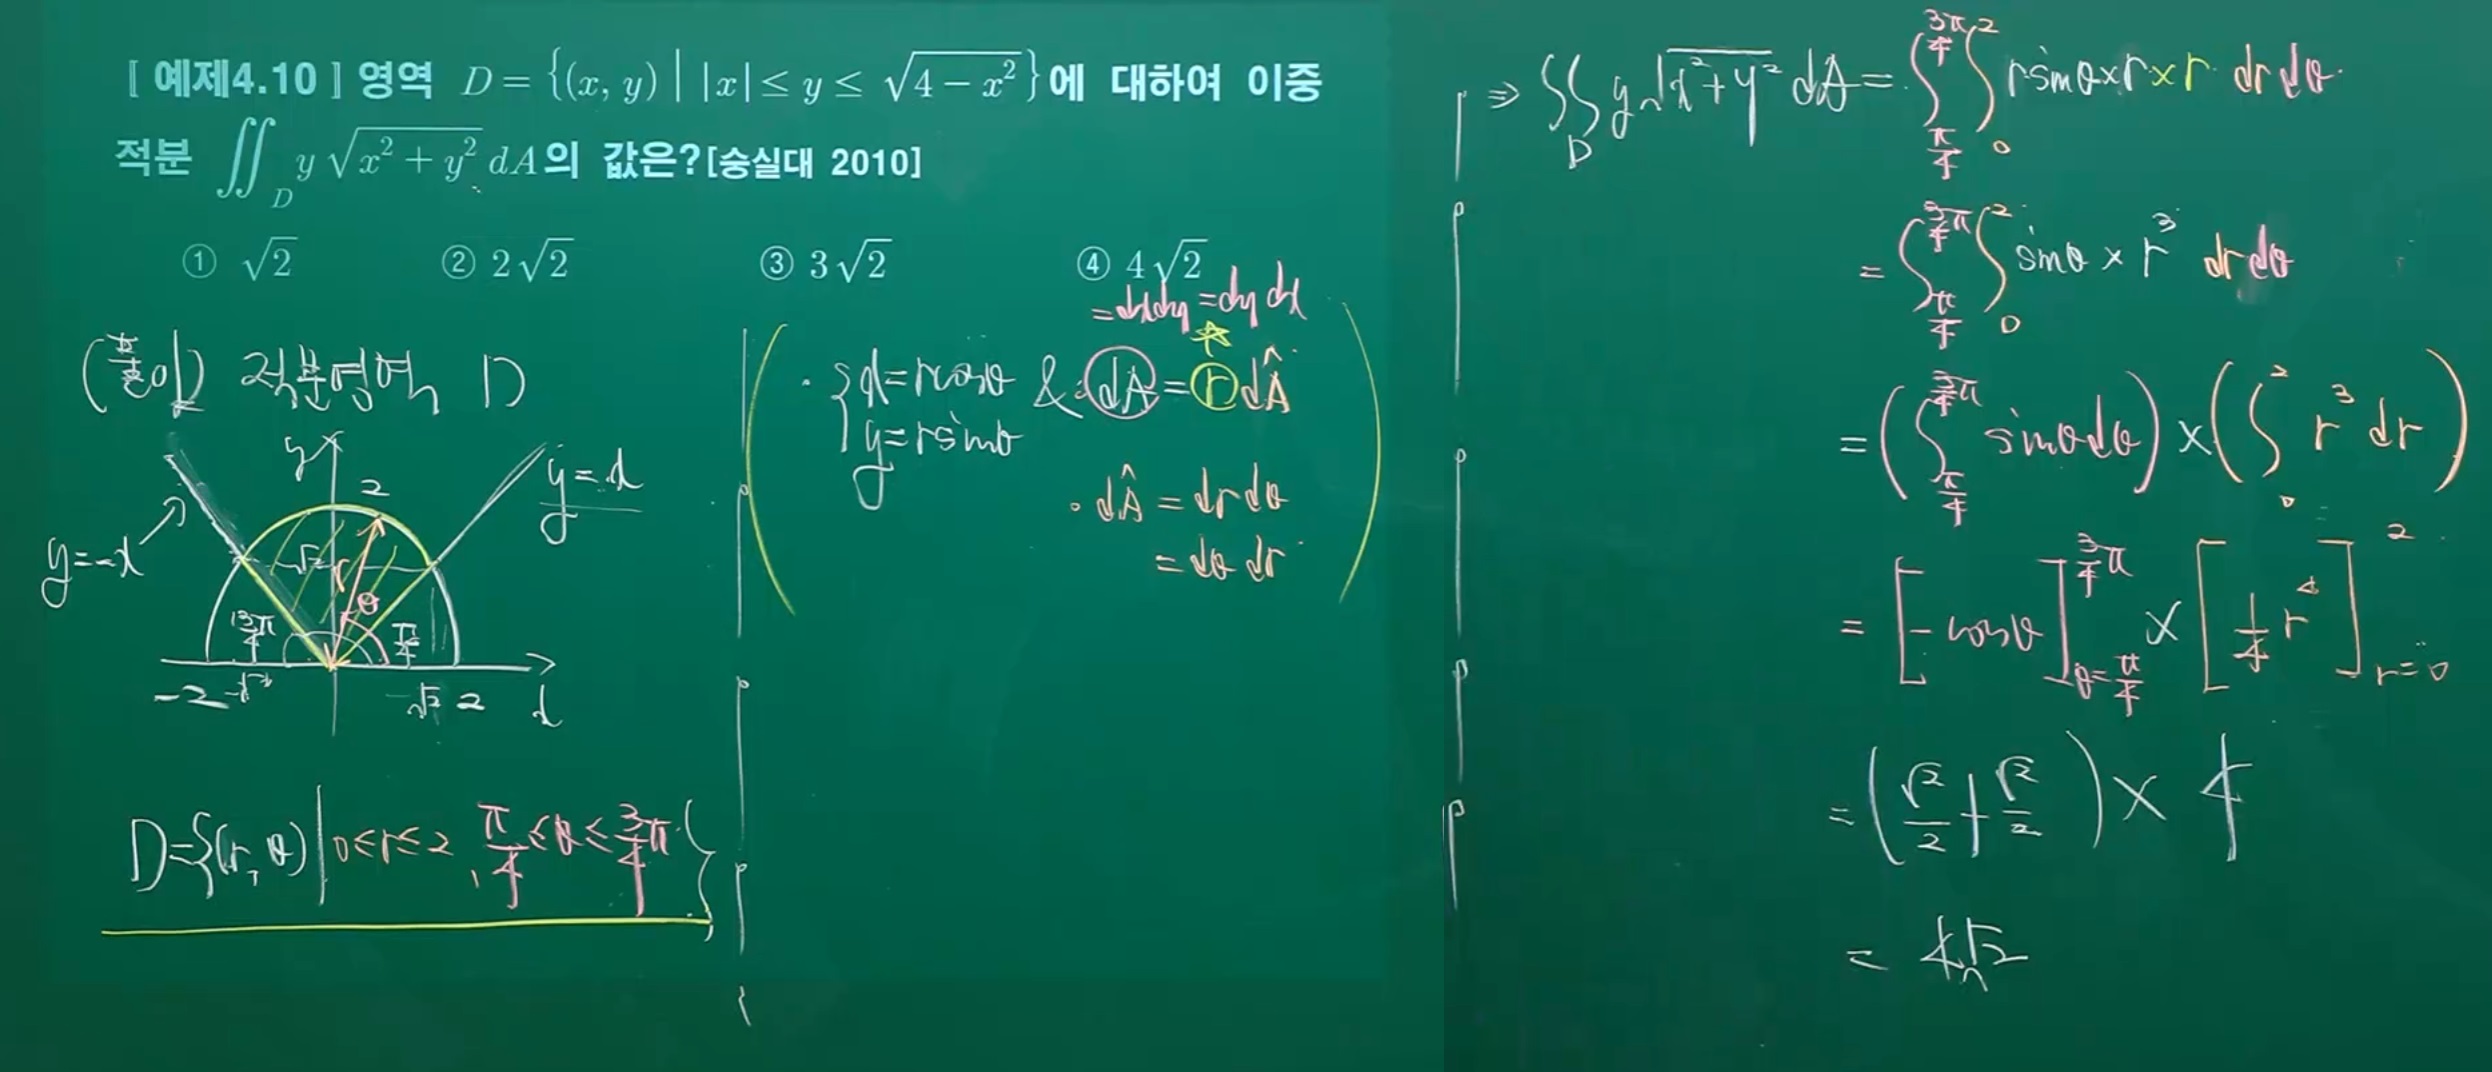 [ 예제4.10 ] 영역 D = {(x, y) | |x| ≤ y ≤ √(4 − x²)}에 대하여 이중
적분 ∬_D y √(x² + y²) dA의 값은?[숭실대 2010]
① √2 ② 2√2 ③ 3√2 ④ 4√2
(풀이) 적분영역 D
y
2
y=x
y=-x
√2
r
θ
3/4π
π/4
-2 -√2 √2 2 x
D={(r, θ) | 0≤r≤2, π/4≤θ≤3/4π}
=dxdy=dydx
· {x=rcosθ & dA = r dÂ
y=rsinθ
· dÂ = drdθ
= dθ dr
⇒ ∬_D y√(x²+y²) dA = ∫_{π/4}^{3π/4} ∫_0^2 rsinθ×r×r drdθ
= ∫_{π/4}^{3/4π} ∫_0^2 sinθ × r³ drdθ
= (∫_{π/4}^{3/4π} sinθdθ) × (∫_0^2 r³ dr)
= [-cosθ]_{θ=π/4}^{3/4π} × [1/4 r⁴]_{r=0}^{2}
= (√2/2 + √2/2) × 4
= 4√2